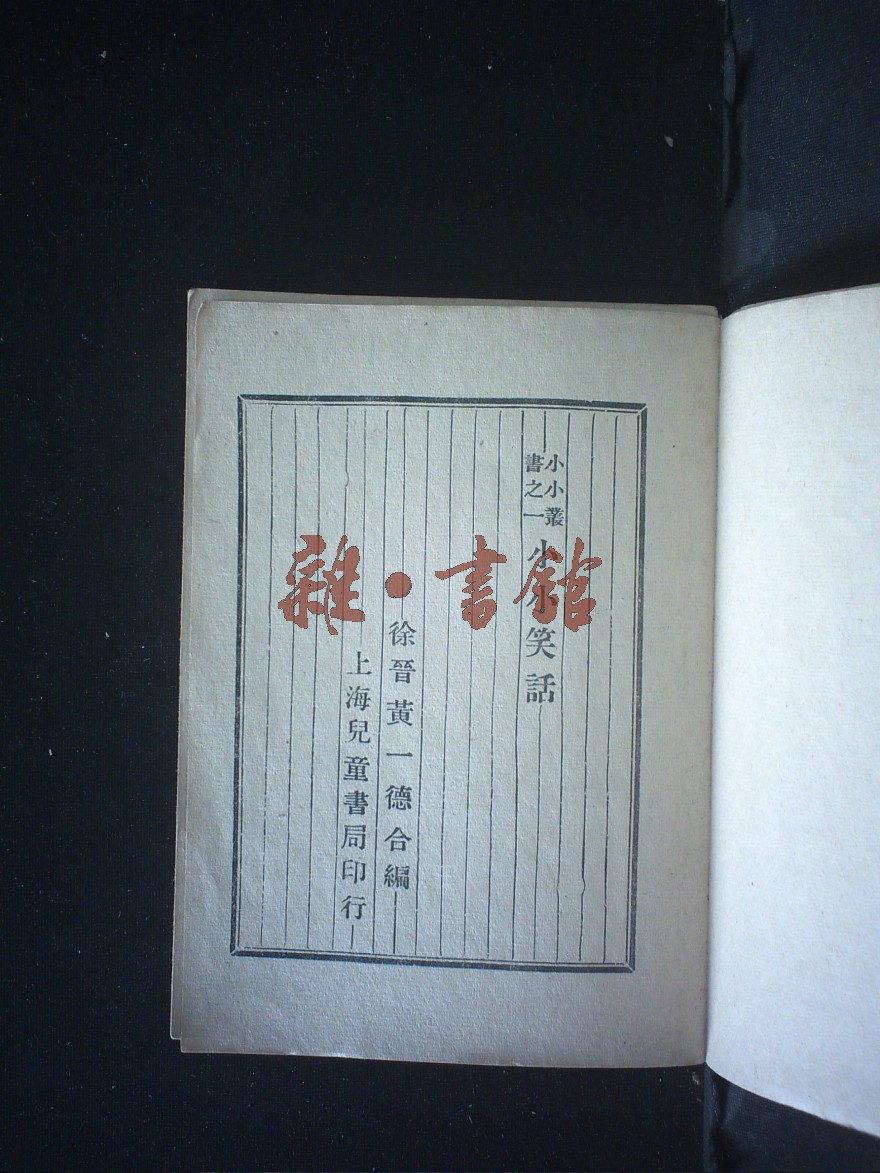 小小叢
書之一
小小笑話
徐晉黃一德合編
上海兒童書局印行
雜·書館